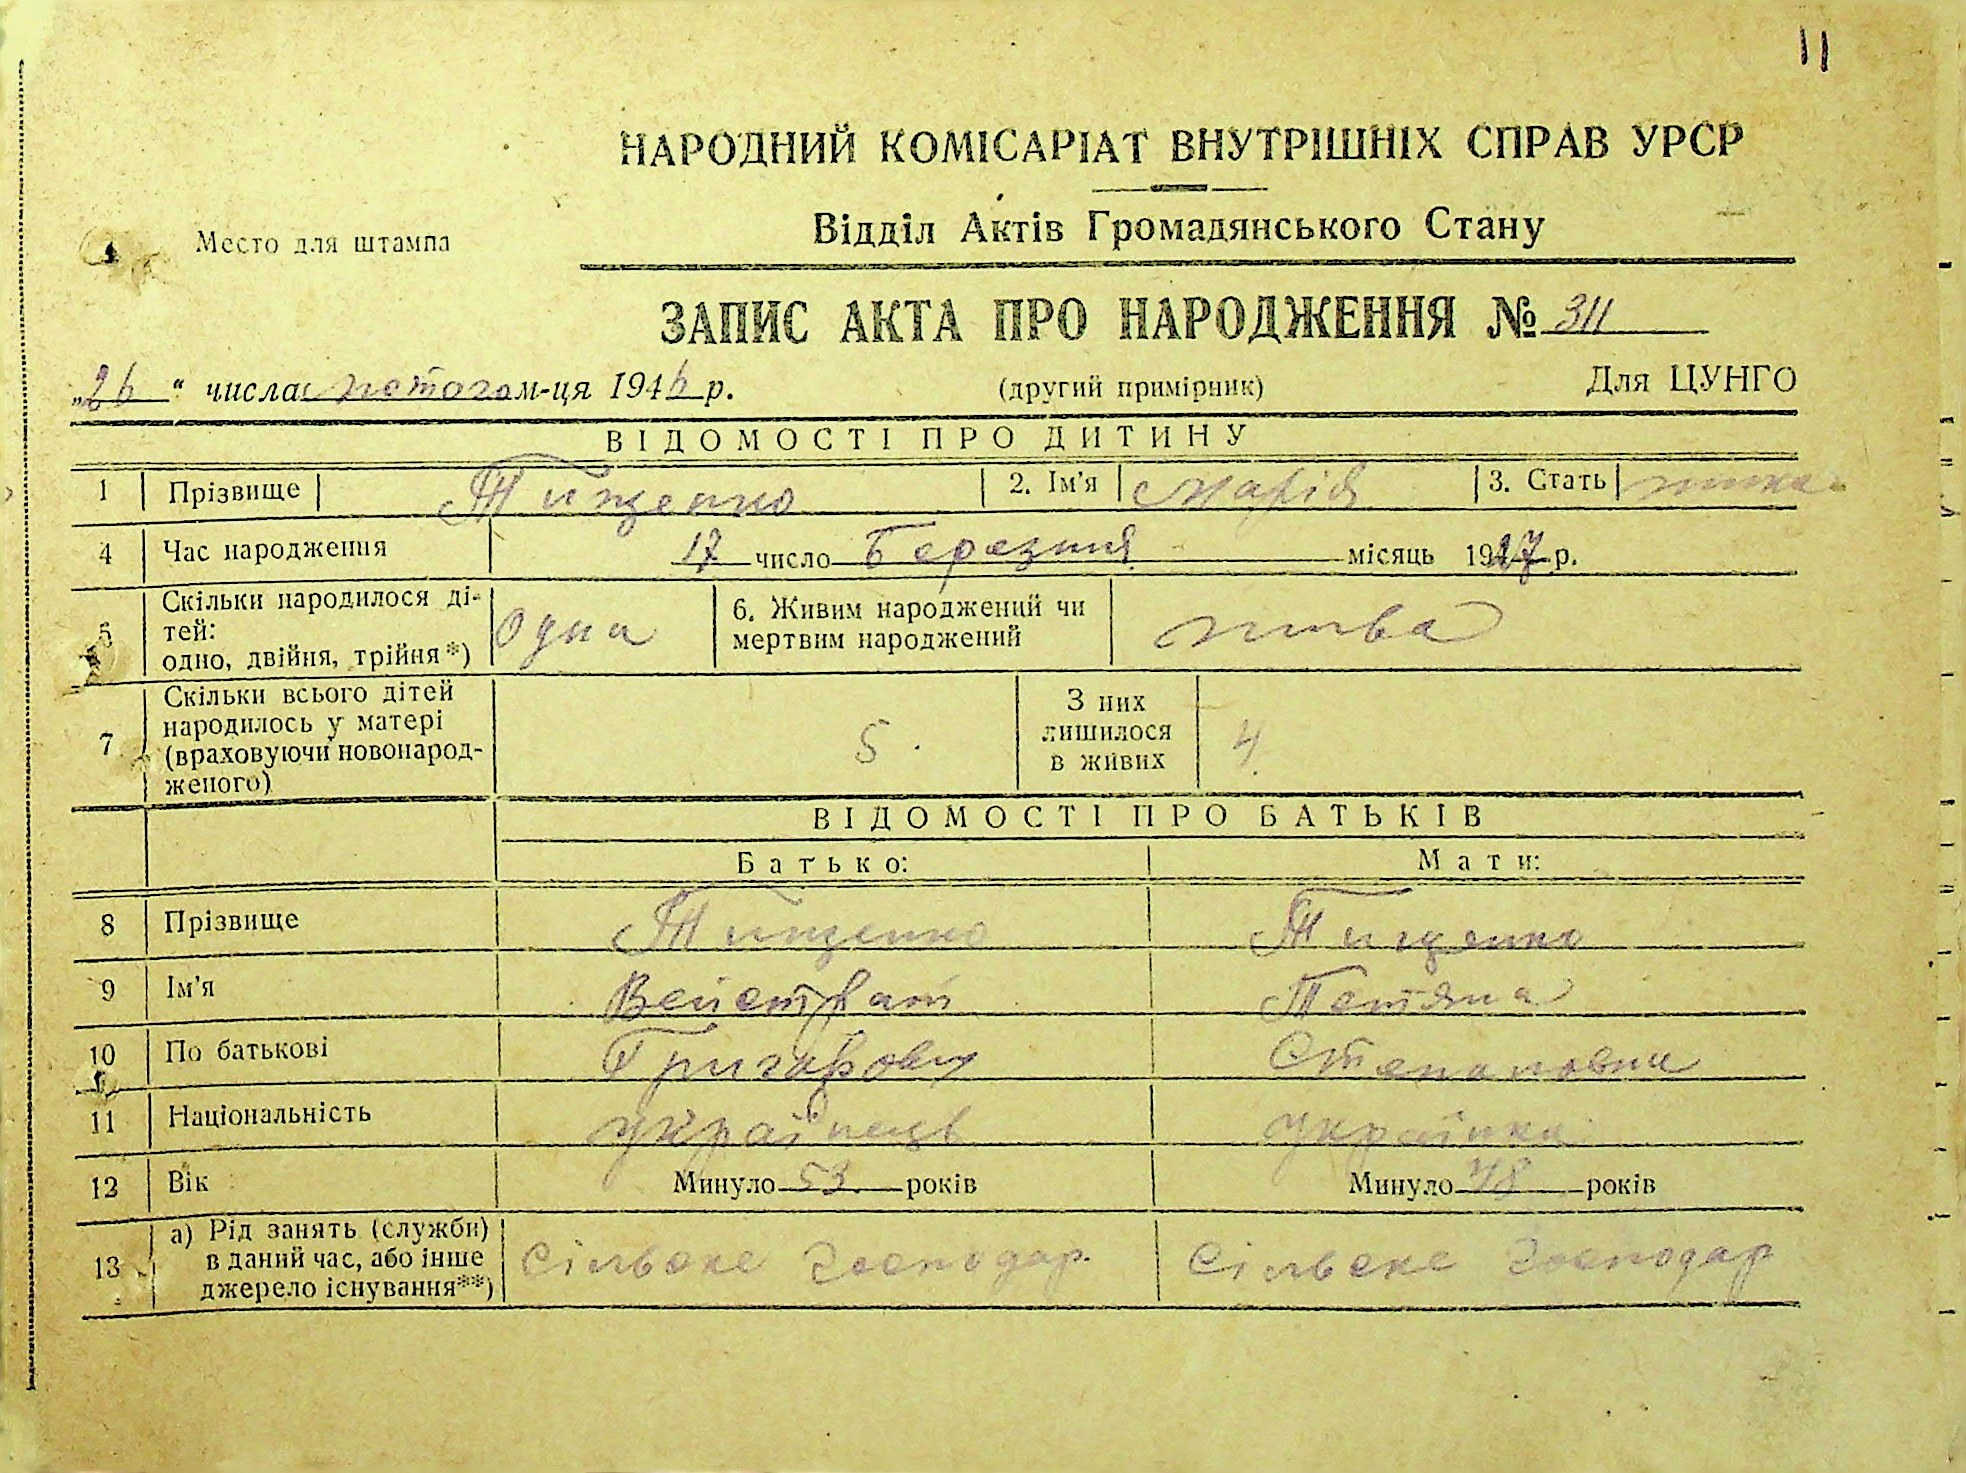 11
НАРОДНИЙ КОМІСАРІАТ ВНУТРІШНІХ СПРАВ УРСР
Место для штампа
Відділ Актів Громадянського Стану
ЗАПИС АКТА ПРО НАРОДЖЕННЯ № 311
„26“ числа лютого м-ця 1946 р. (другий примірник) Для ЦУНГО
ВІДОМОСТІ ПРО ДИТИНУ
1 Прізвище Тищенко 2. Ім'я Марія 3. Стать
4 Час народження 17 число Березния місяць 1927 р.
5 Скільки народилося ді-
тей:
одно, двійня, трійня*) Одна
6. Живим народжений чи
мертвим народжений жива
7 Скільки всього дітей
народилось у матері
(враховуючи новонарод-
женого) 5.
З них
лишилося
в живих 4
ВІДОМОСТІ ПРО БАТЬКІВ
Батько: Мати:
8 Прізвище Тищенко Тищенко
9 Ім'я Тетяна
10 По батькові Григорович Степановна
11 Національність Українець Українка
12 Вік Минуло 53 років Минуло 48 років
13 а) Рід занять (службы)
в даний час, або інше
джерело існування**) Сільске Господар. Сільске Господар